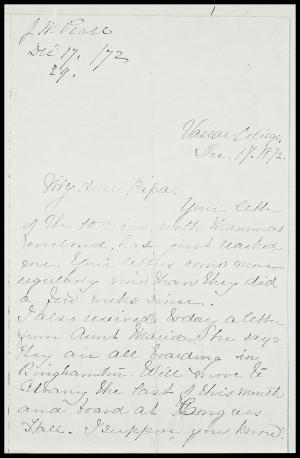 J M Pease
Dec 17. /72
29.
Vassar College,
Dec. 17. 1872.
My dear Papa.
Your letter
of the 10th inst. with Mamma's
enclosed, has just reached
me. Your letters come more
regularly now than they did
a few weeks since.
I also received today a letter
from Aunt Maria. She says
they are all boarding in
Binghamton. Will move to
Albany the last of this month
and board at Congress
Hall. I suppose you know